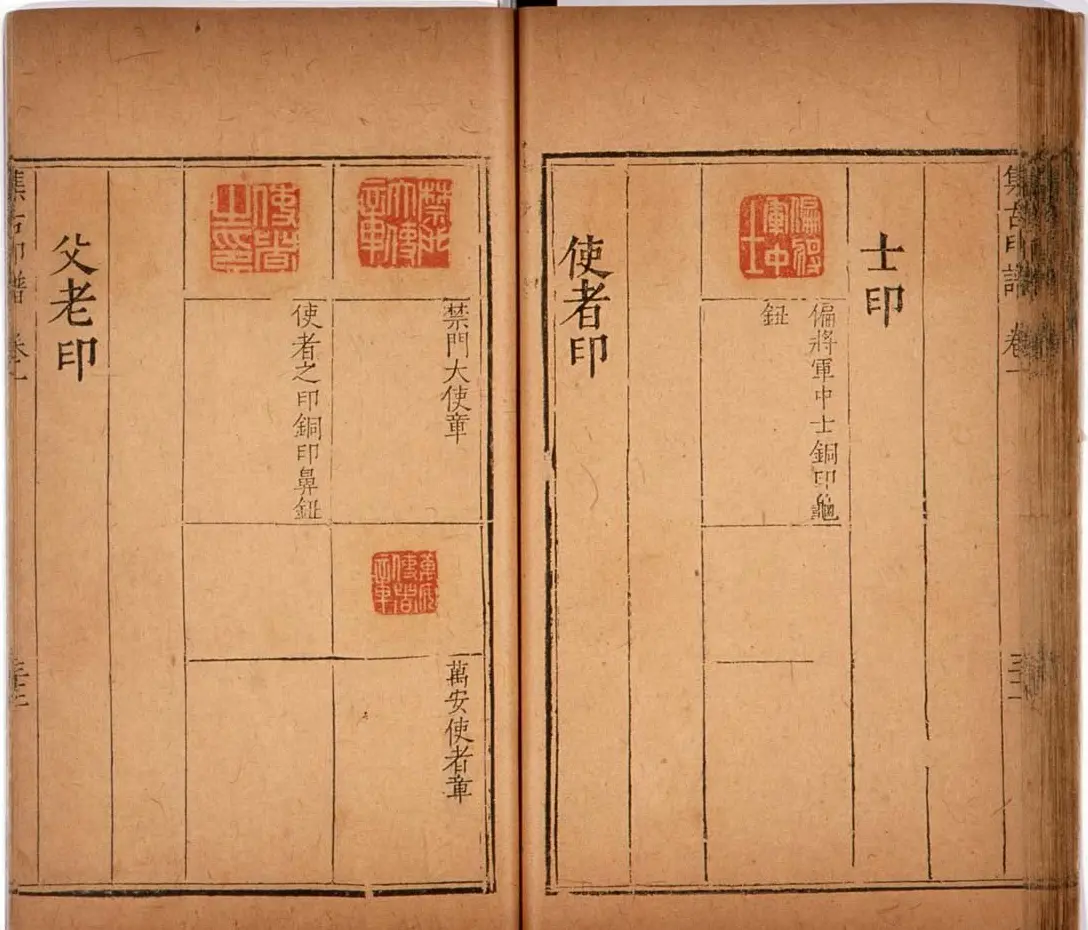 集古印譜 卷一
士印
偏將軍中士銅印龜
鈕
使者印
禁門大使章
萬安使者章
使者之印銅印鼻鈕
父老印
集古印譜 卷一